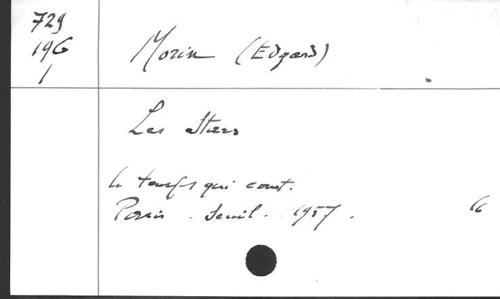 729
19G
1
Morin (Edgard)
Les stars
le temps qui court.
Paris. Seuil. 1957.
16